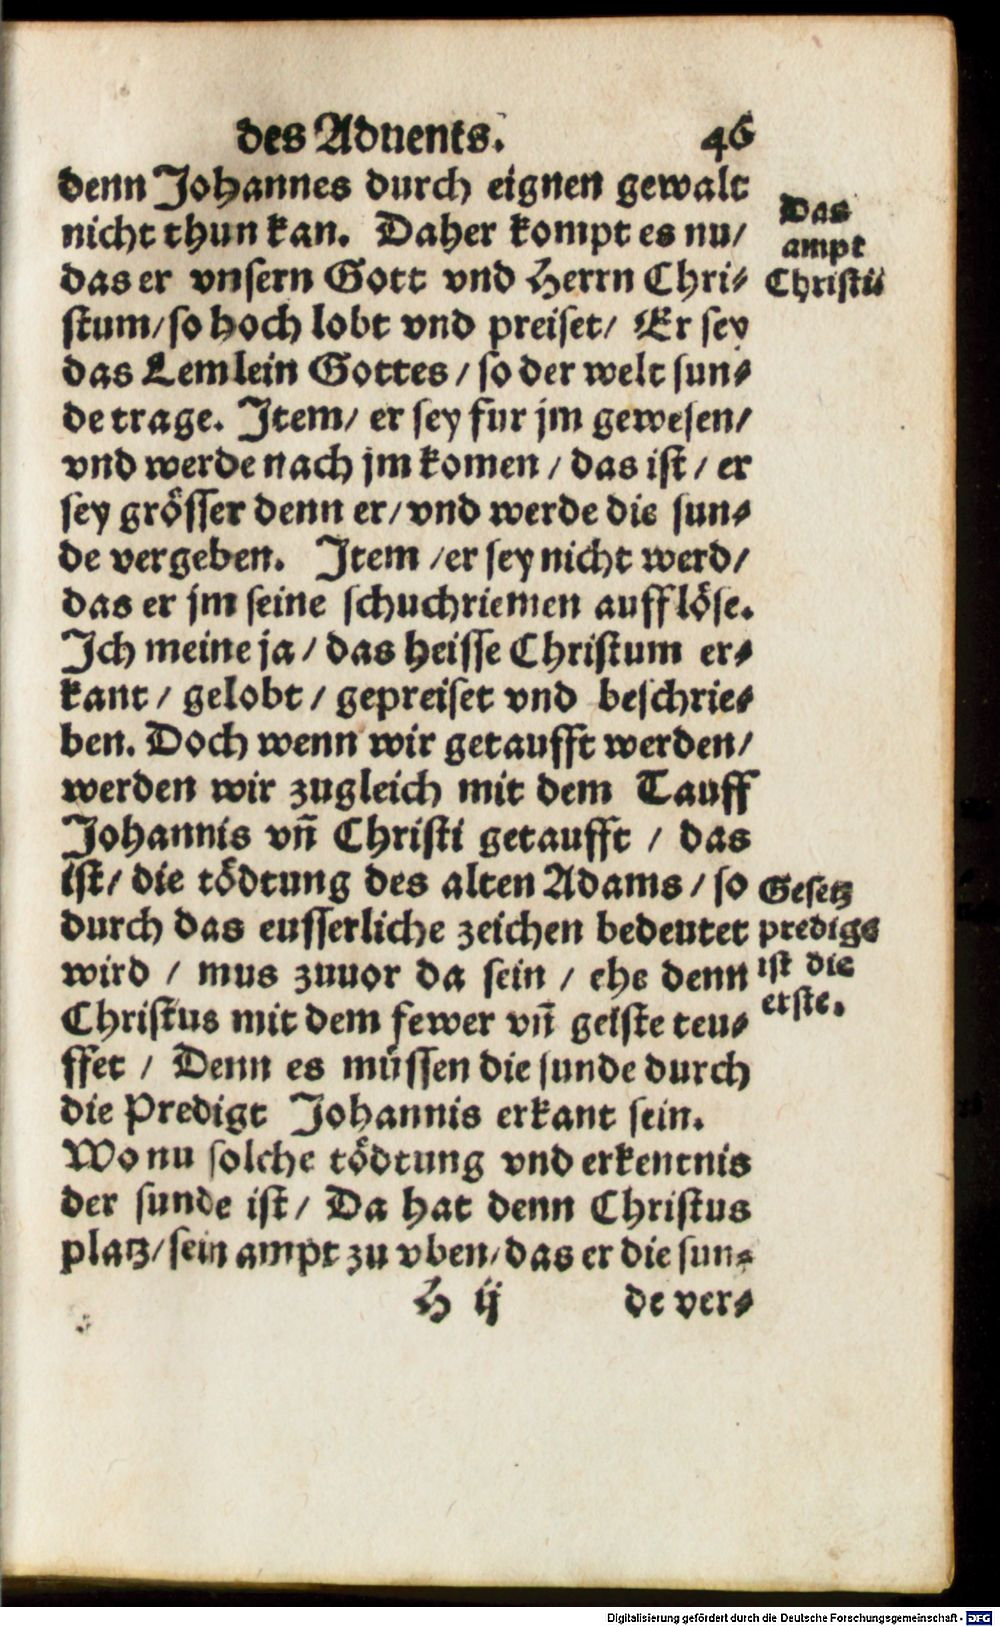 des Aduents. 46
denn Johannes durch eignen gewalt
nicht thun kan. Daher kompt es nu/
das er vnsern Gott vnd Herrn Chri-
stum/so hoch lobt vnd preiset/ Er sey
das Lemlein Gottes / so der welt sun-
de trage. Item/ er sey fur jm gewesen/
vnd werde nach jm komen / das ist / er
sey grösser denn er/ vnd werde die sun-
de vergeben. Item /er sey nicht werd/
das er jm seine schuchriemen aufflöse.
Ich meine ja / das heisse Christum er-
kant / gelobt / gepreiset vnd beschrie-
ben. Doch wenn wir getaufft werden/
werden wir zugleich mit dem Tauff
Johannis vñ Christi getaufft / das
ist/ die tödtung des alten Adams / so
durch das eusserliche zeichen bedeutet
wird / mus zuuor da sein / ehe denn
Christus mit dem fewer vñ geiste teu-
ffet / Denn es müssen die sunde durch
die Predigt Johannis erkant sein.
Wo nu solche tödtung vnd erkentnis
der sunde ist / Da hat denn Christus
platz/ sein ampt zu vben/ das er die sun-
H ij de ver-
Das
ampt
Christi
Gesetz
predigt
ist die
erste.
Digitalisierung gefördert durch die Deutsche Forschungsgemeinschaft - DFG